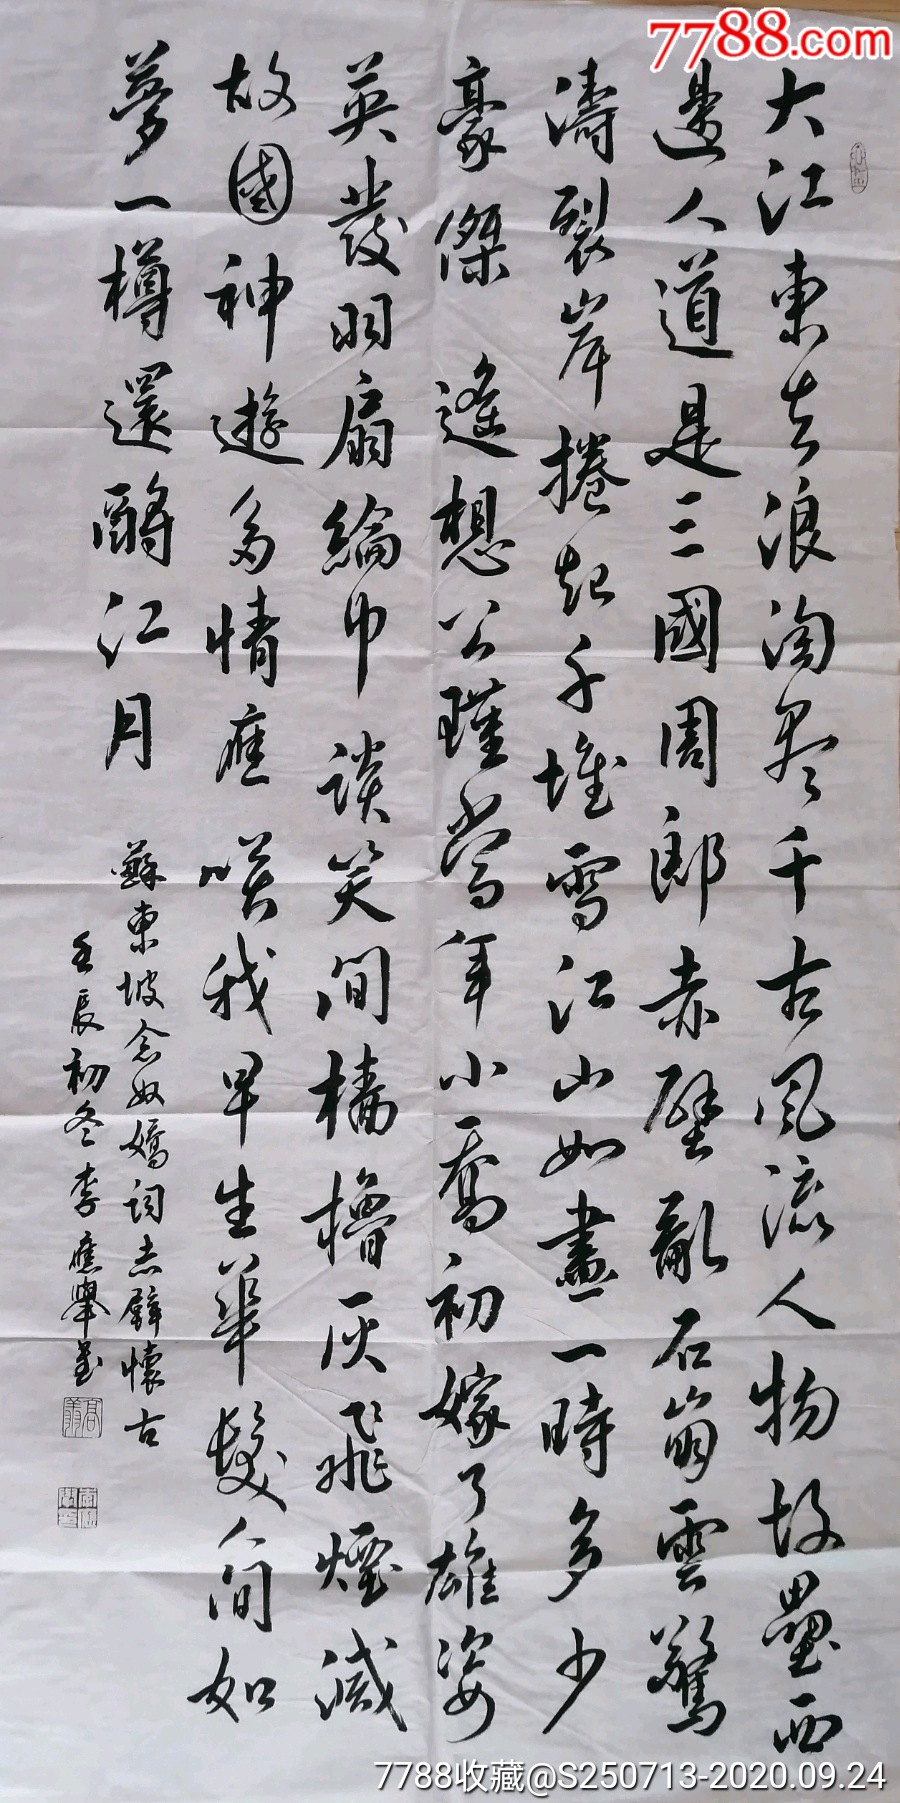 7788.com
大江東去浪淘盡千古風流人物故壘西
邊人道是三國周郎赤壁亂石崩雲驚
濤裂岸捲起千堆雪江山如畫一時多少
豪傑 遙想公瑾當年小喬初嫁了雄姿
英發羽扇綸巾談笑間檣櫓灰飛煙滅
故國神遊多情應笑我早生華髮人間如
夢一樽還酹江月
蘇東坡念奴嬌詞赤壁懷古
壬辰初冬李應舉書
7788收藏@S250713-2020.09.24